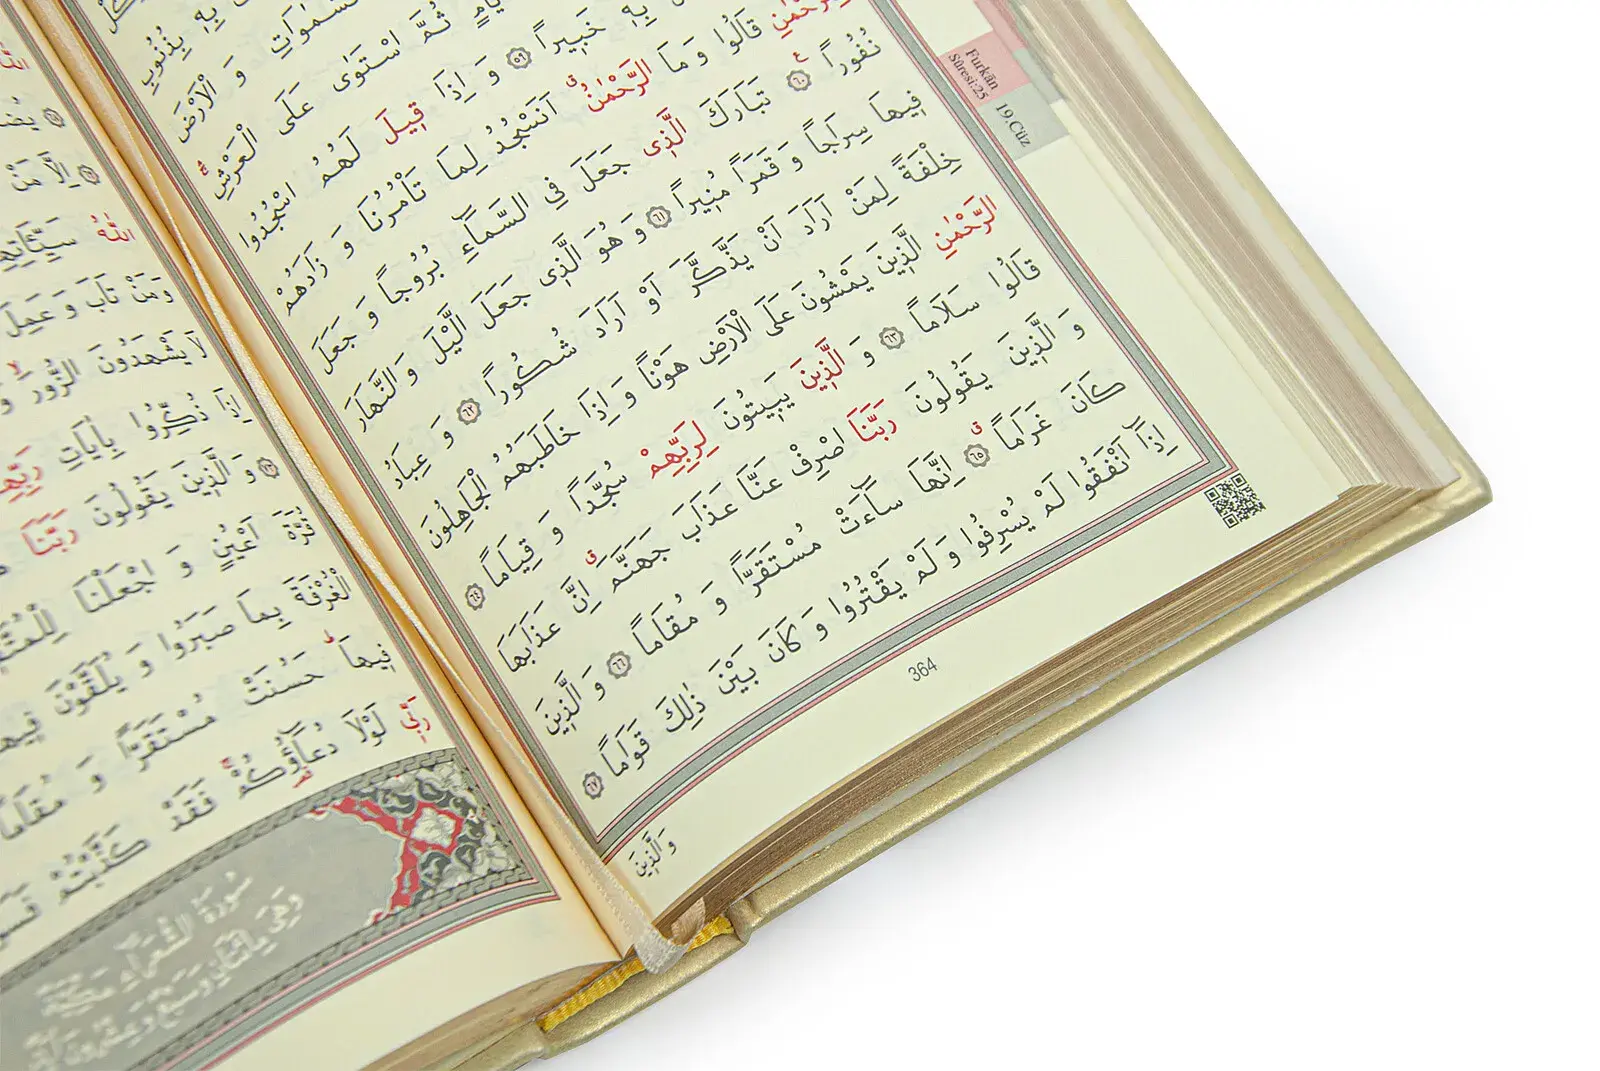 بِهِ بِذُنُوبِ
السَّمٰوَاتِ وَ الْاَرْضَ
ثُمَّ اسْتَوٰى عَلَى الْعَرْشِ
بِهِ خَبِيرًا ٥٩ وَ اِذَا قِيلَ لَهُمُ اسْجُدُوا
قَالُوا وَ مَا الرَّحْمٰنُ اَنَسْجُدُ لِمَا تَأْمُرُنَا وَ زَادَهُمْ
نُفُورًا ٦٠ تَبَارَكَ الَّذِى جَعَلَ فِي السَّمَٓاءِ بُرُوجًا وَ جَعَلَ
فِيهَا سِرَاجًا وَ قَمَرًا مُنِيرًا ٦١ وَ هُوَ الَّذِى جَعَلَ الَّيْلَ وَ النَّهَارَ
خِلْفَةً لِمَنْ اَرَادَ اَنْ يَذَّكَّرَ اَوْ اَرَادَ شُكُورًا ٦٢ وَ عِبَادُ
الرَّحْمٰنِ الَّذِينَ يَمْشُونَ عَلَى الْاَرْضِ هَوْنًا وَ اِذَا خَاطَبَهُمُ الْجَاهِلُونَ
قَالُوا سَلَامًا ٦٣ وَ الَّذِينَ يَبِيتُونَ لِرَبِّهِمْ سُجَّدًا وَ قِيَامًا ٦٤
وَ الَّذِينَ يَقُولُونَ رَبَّنَا اصْرِفْ عَنَّا عَذَابَ جَهَنَّمَ اِنَّ عَذَابَهَا
كَانَ غَرَامًا ٦٥ اِنَّهَا سَٓاءَتْ مُسْتَقَرًّا وَ مُقَامًا ٦٦ وَ الَّذِينَ
اِذَٓا اَنْفَقُوا لَمْ يُسْرِفُوا وَ لَمْ يَقْتُرُوا وَ كَانَ بَيْنَ ذٰلِكَ قَوَامًا ٦٧
وَ الَّذِينَ
364
Furkān
Sûresi:25
19.Cüz
اِلَّا مَنْ
اللّٰهُ سَيِّئَاتِهِمْ
وَ مَنْ تَابَ وَ عَمِلَ
لَا يَشْهَدُونَ الزُّورَ
اِذَا ذُكِّرُوا بِاٰيَاتِ رَبِّهِمْ
وَ الَّذِينَ يَقُولُونَ رَبَّنَا
قُرَّةَ اَعْيُنٍ وَ اجْعَلْنَا
الْغُرْفَةَ بِمَا صَبَرُوا وَ يُلَقَّوْنَ فِيهَا
فِيهَا حَسُنَتْ مُسْتَقَرًّا وَ مُقَامًا
رَبِّي لَوْلَا دُعَٓاؤُكُمْ فَقَدْ كَذَّبْتُمْ
سُورَةُ الشُّعَرَاءِ مَكِّيَّةٌ